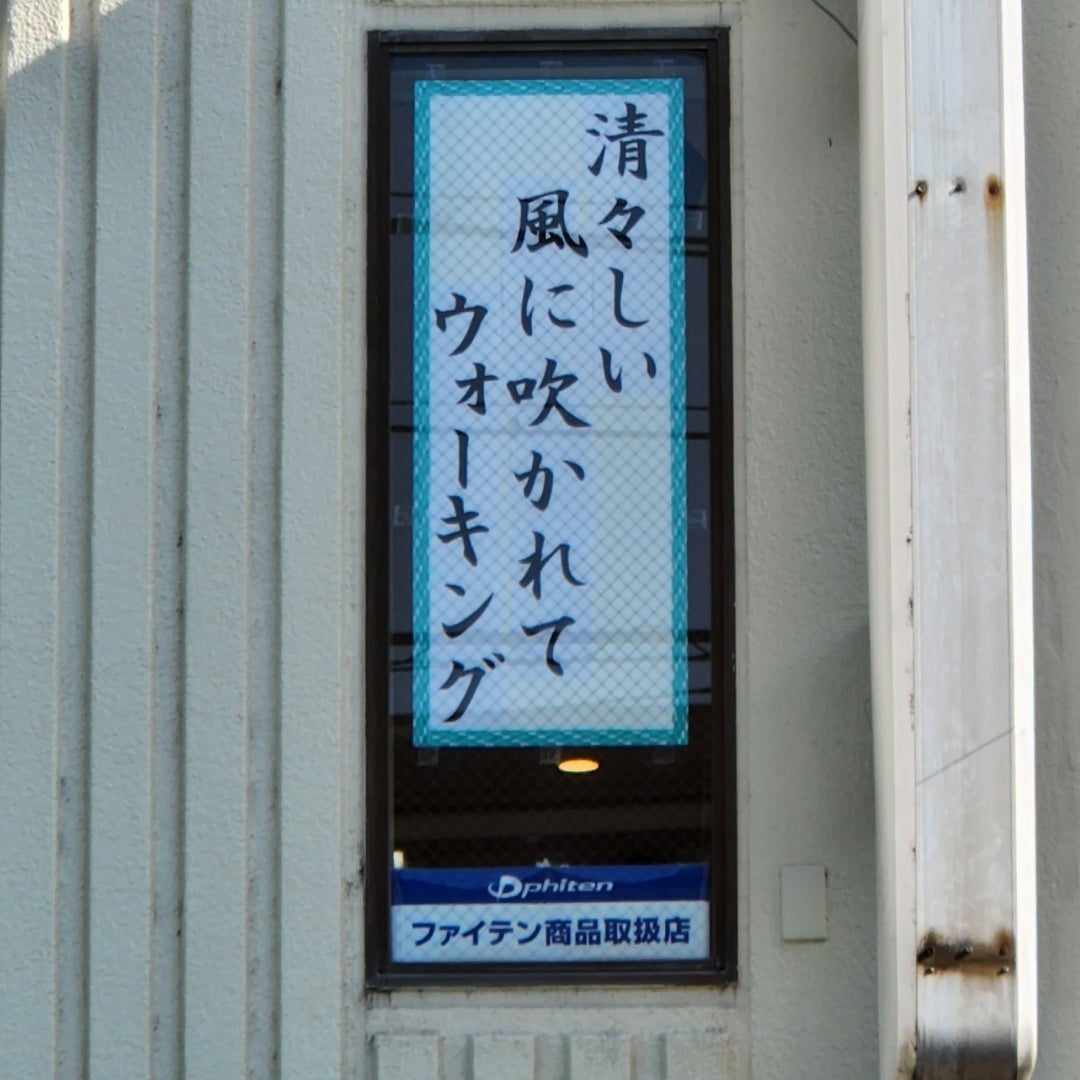 清々しい
風に吹かれて
ウォーキング
phiten
ファイテン商品取扱店